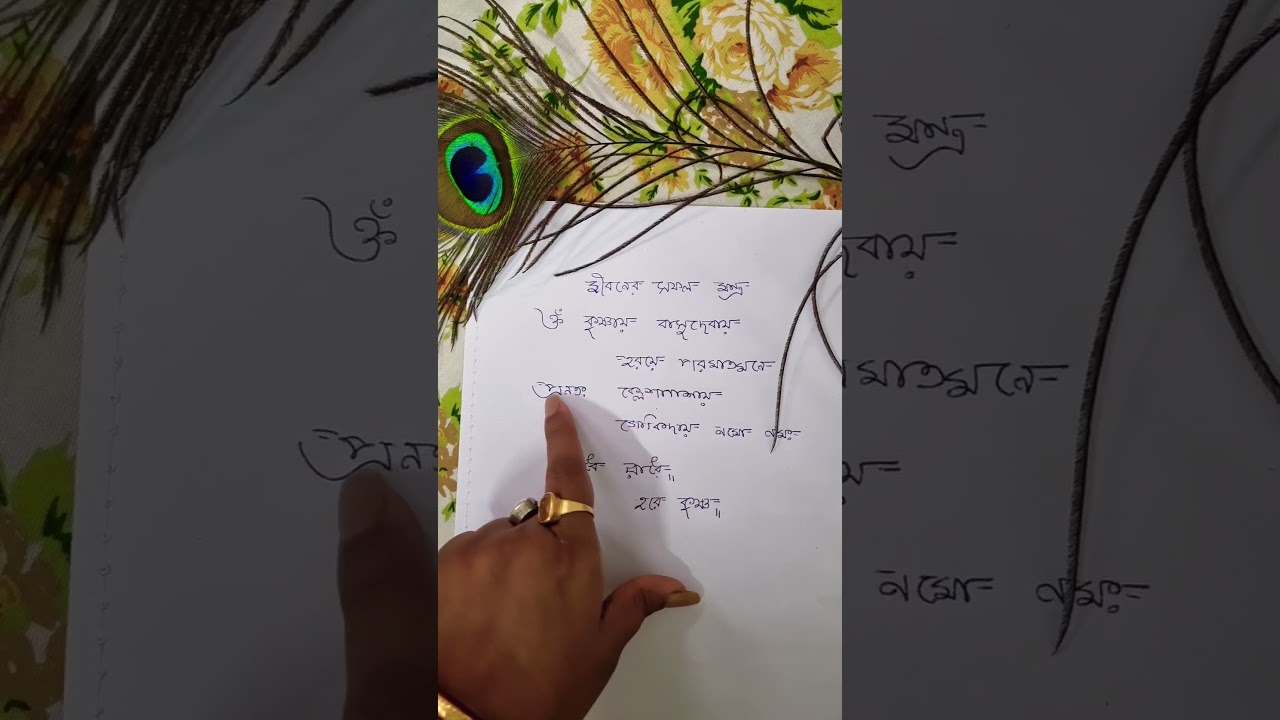 জীবনের সফল মন্ত্র
ওঁ কৃষ্ণায় বাসুদেবায়
হরয়ে পরমাত্মনে
প্রনতঃ ক্লেশনাশায়
গোবিন্দায় নমো নমঃ
রাধে॥
হরে কৃষ্ণ॥